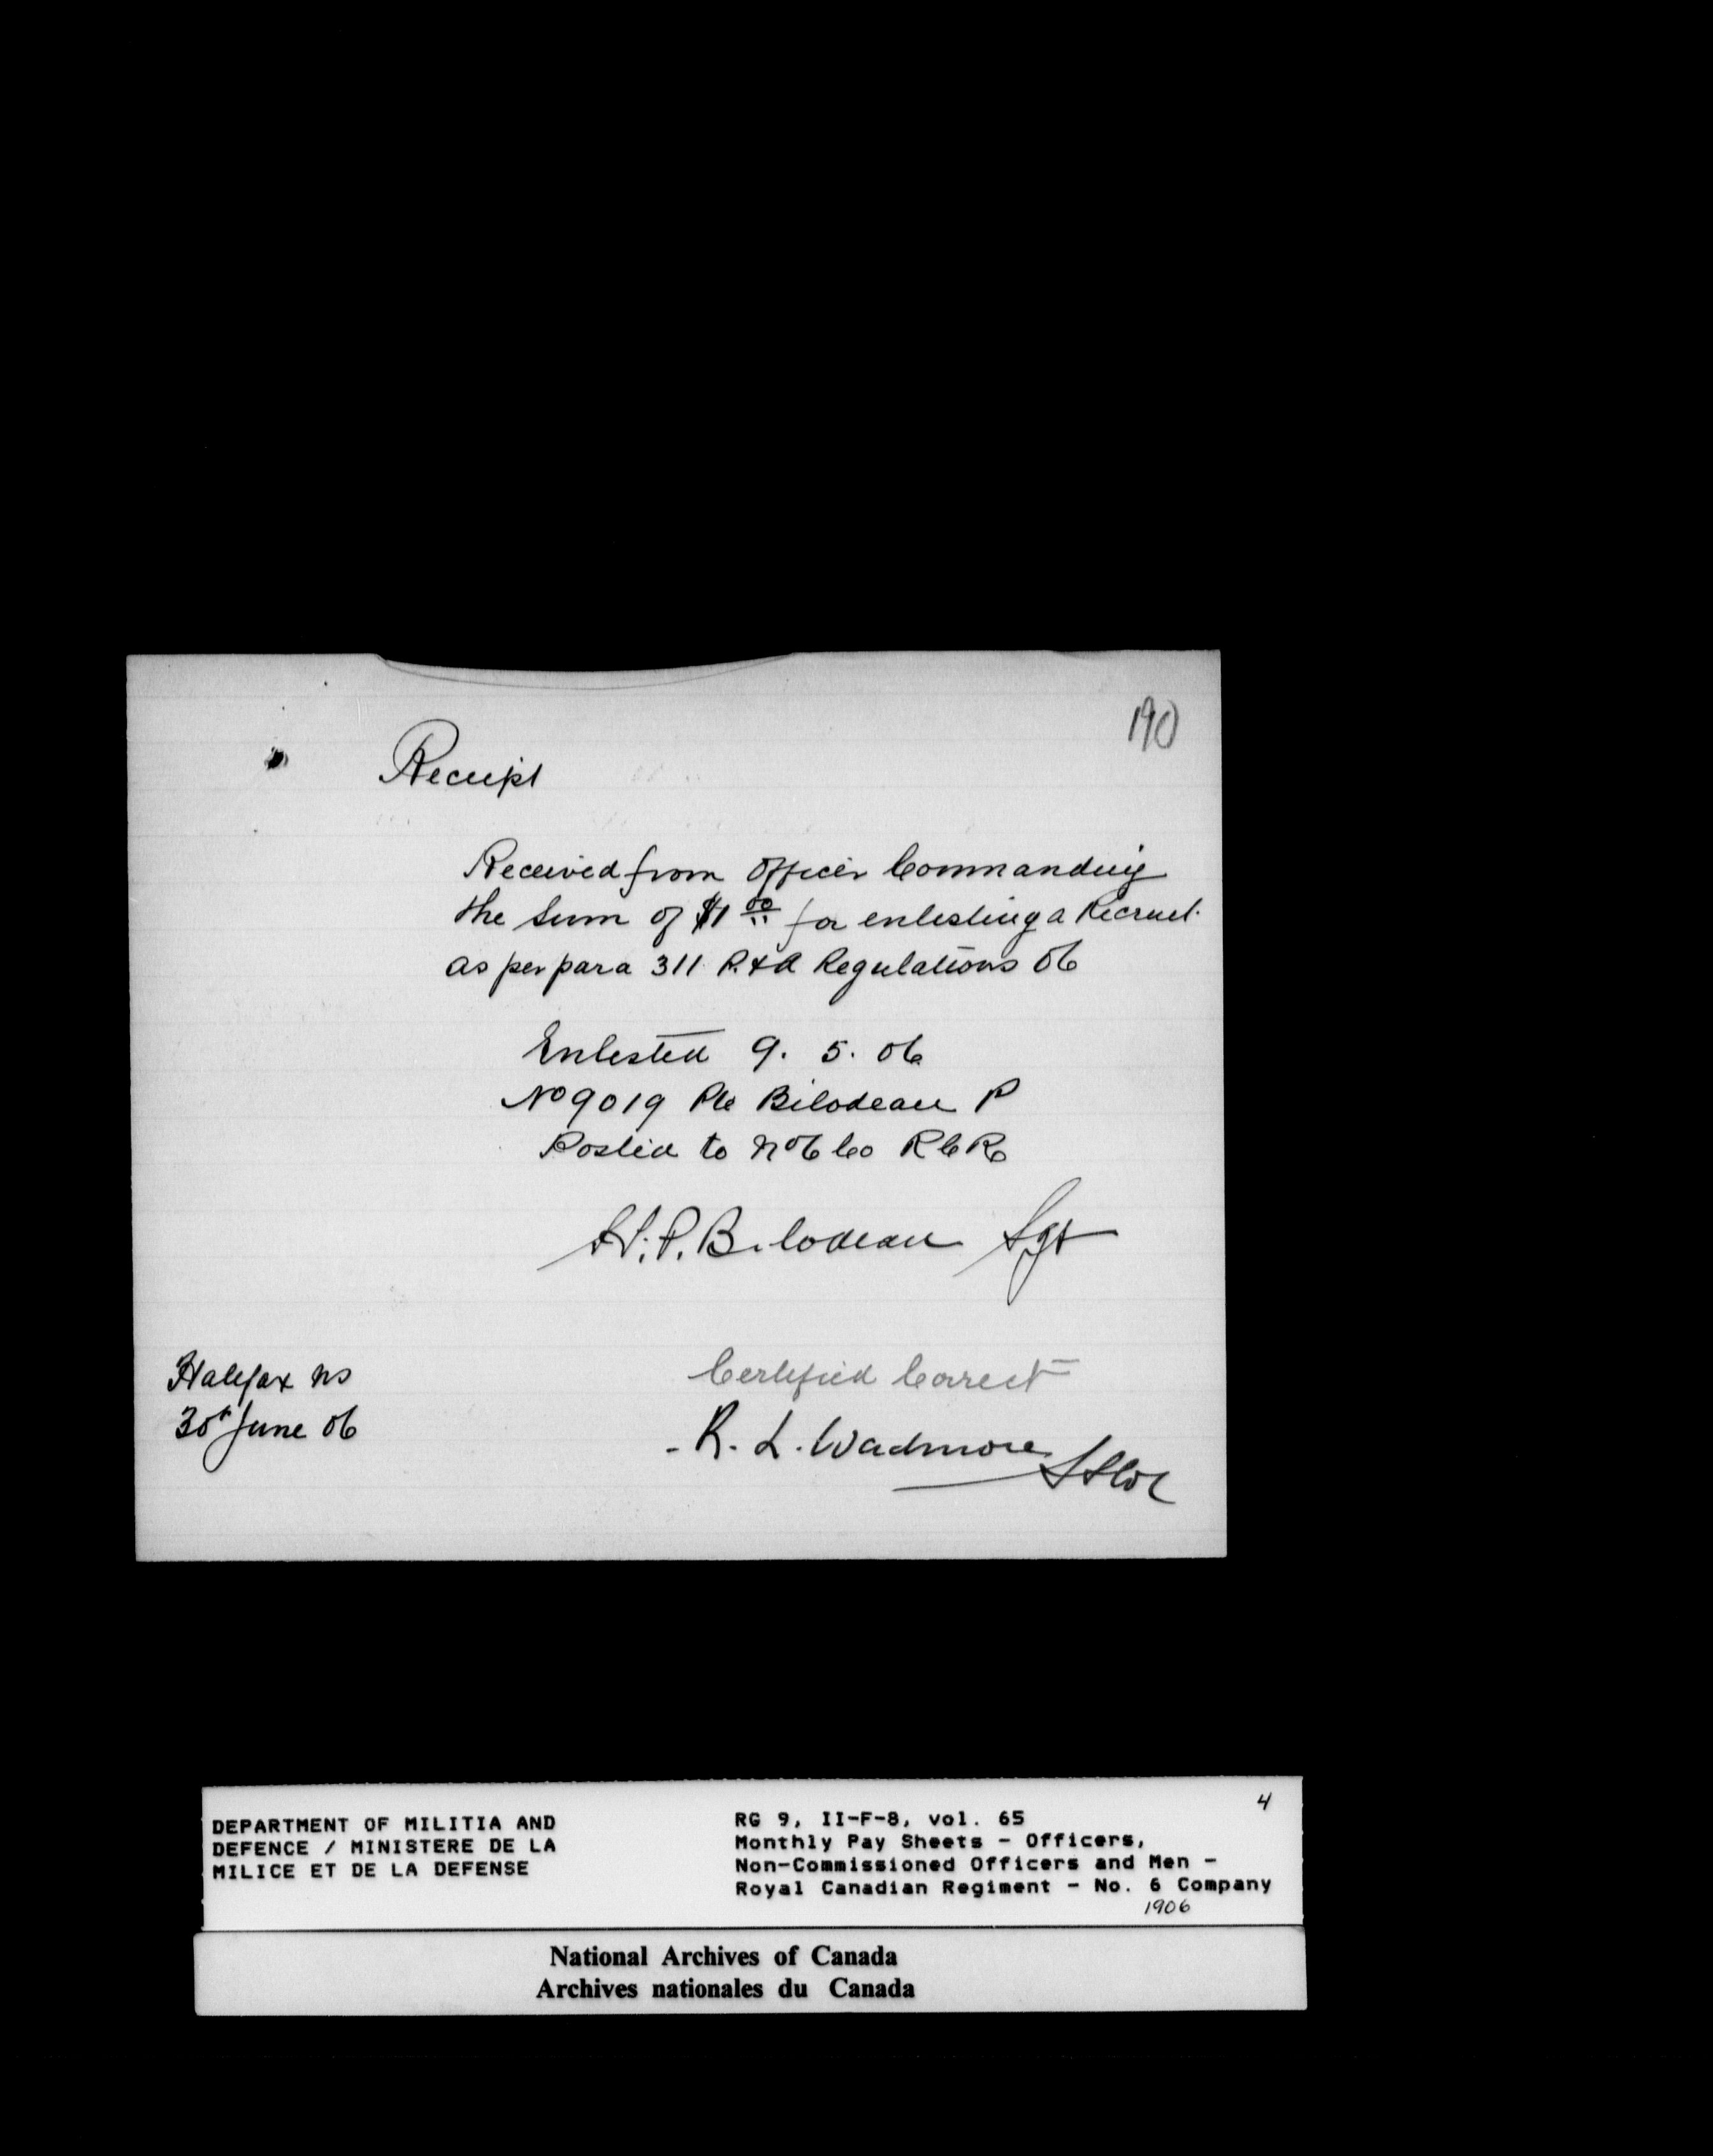 190
Receipt
Received from Officer Commanding
the Sum of $1 00 for enlisting a Recruit.
as per para 311 P. & A Regulations 06
Enlisted 9. 5. 06
No 9019 Pte Bilodeau P
Posted to No 6 Co R C R
H. P. Bilodeau Sgt
Halifax NS
30th June 06
Certified Correct
R. L. Wadmore
Lt Col
4
DEPARTMENT OF MILITIA AND
DEFENCE / MINISTERE DE LA
MILICE ET DE LA DEFENSE
RG 9, II-F-8, vol. 65
Monthly Pay Sheets - Officers,
Non-Commissioned Officers and Men -
Royal Canadian Regiment - No. 6 Company
1906
National Archives of Canada
Archives nationales du Canada